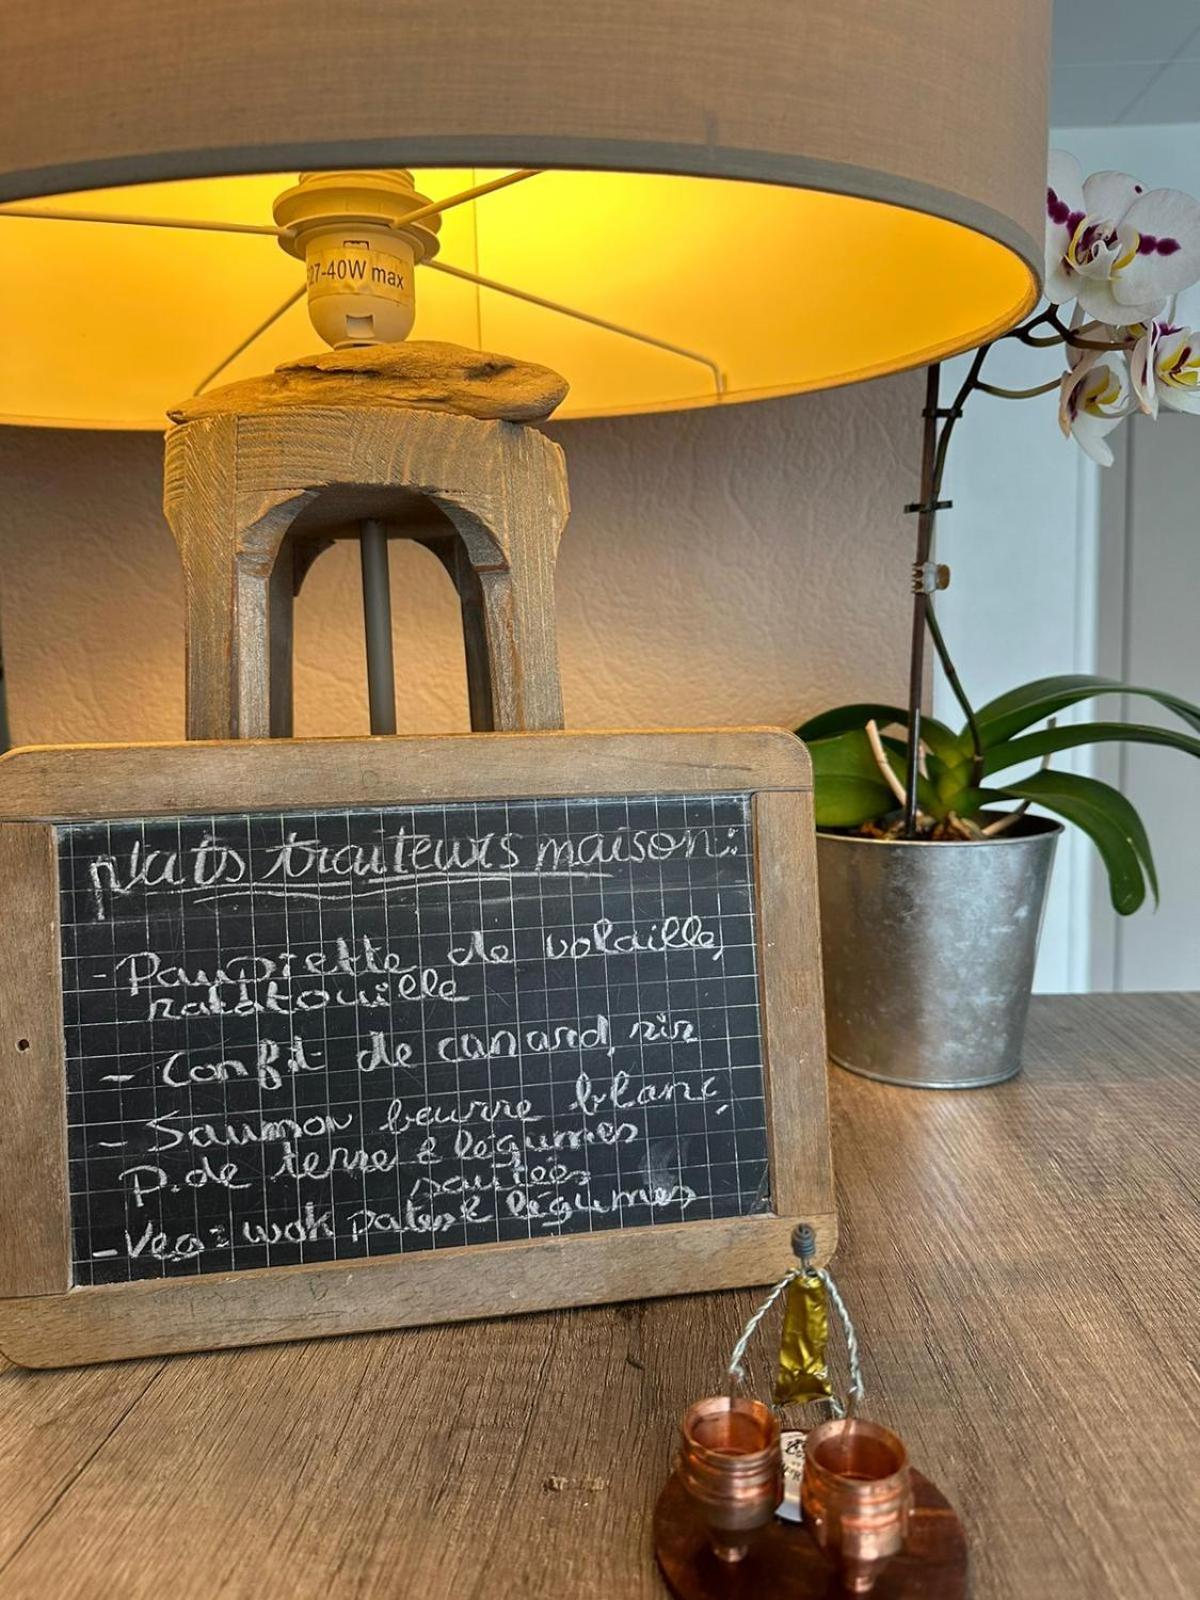 27-40W max
plats traiteurs maison:
- Paupiette de volaille,
ratatouille
- Confit de canard, riz
- Saumon beurre blanc,
P. de terre & légumes
sautées
- Veg: wok pates & légumes